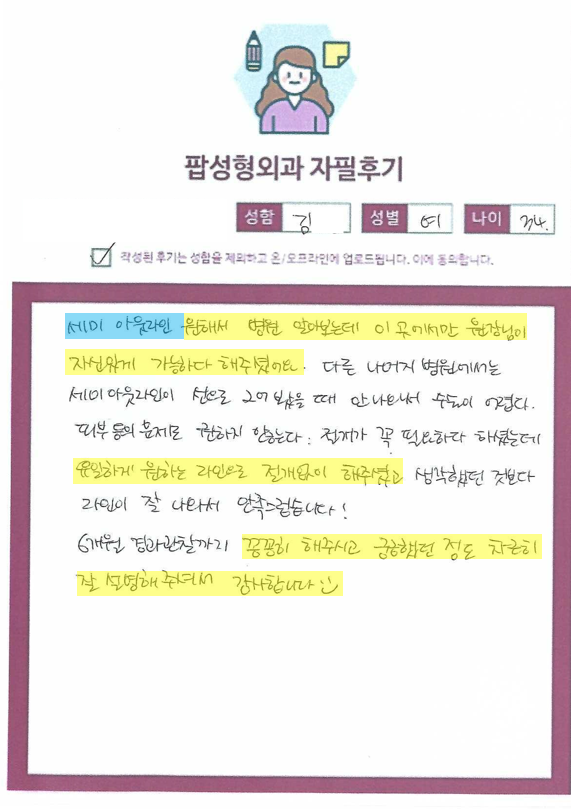 팝성형외과 자필후기
성함 김 성별 여 나이 34.
작성된 후기는 성함을 제외하고 온/오프라인에 업로드됩니다. 이에 동의합니다.
세미 아웃라인 원해서 병원 알아보는데 이 곳에서만 원장님이
자신있게 가능하다 해주셨어요. 다른 나머지 병원에서는
세미아웃라인이 선으로 그어 봤을 때 안나와서 수술이 어렵다.
피부 등의 문제로 권하지 않는다. 절개가 꼭 필요하다 하셨는데
유일하게 원하는 라인으로 절개없이 해주셨고 생각했던 것보다
라인이 잘 나와서 만족스럽습니다!
6개월 경과관찰까지 꼼꼼히 해주시고 궁금했던 점도 차근히
잘 설명해주셔서 감사합니다